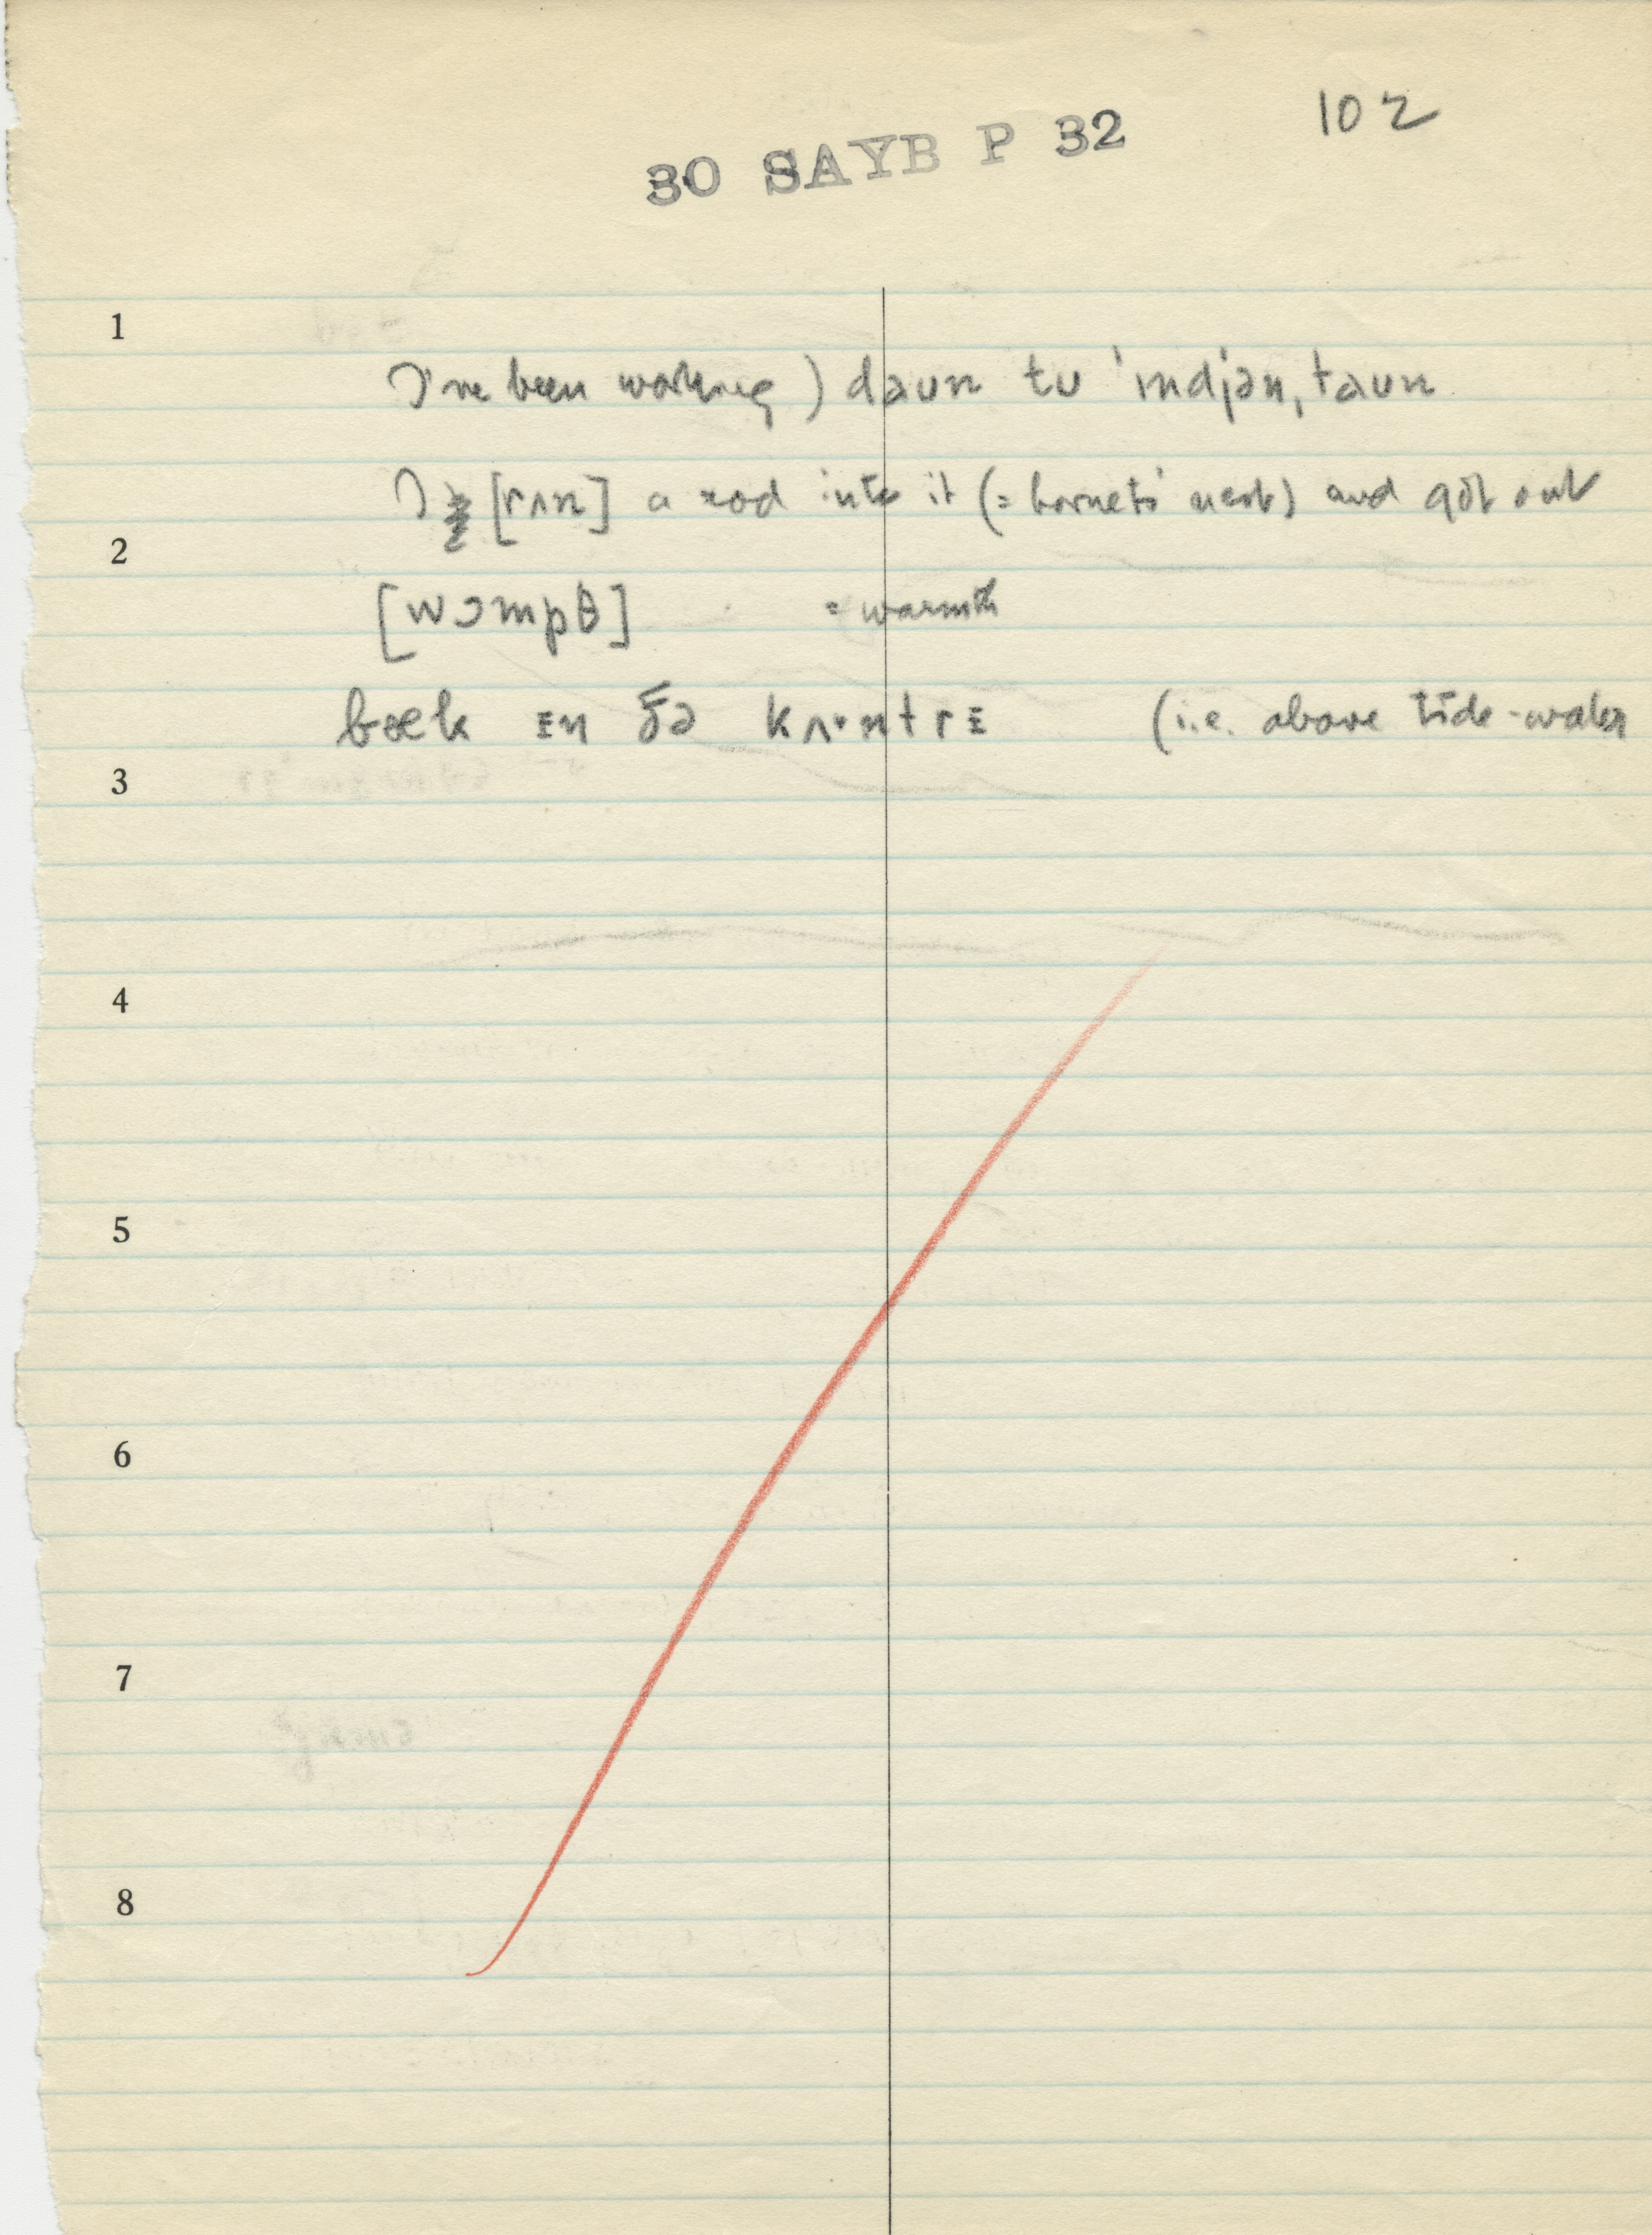 102
30 SAYB P 32
1
I've been working) daun tu 'ɪndjən, taun
I [rʌn] a rod into it (= hornets' nest) and got out
2
[wɔmpθ] = warmth
bæk ɪn ðə kʌ·ntrɪ (i.e. above tide-water
3
4
5
6
7
8